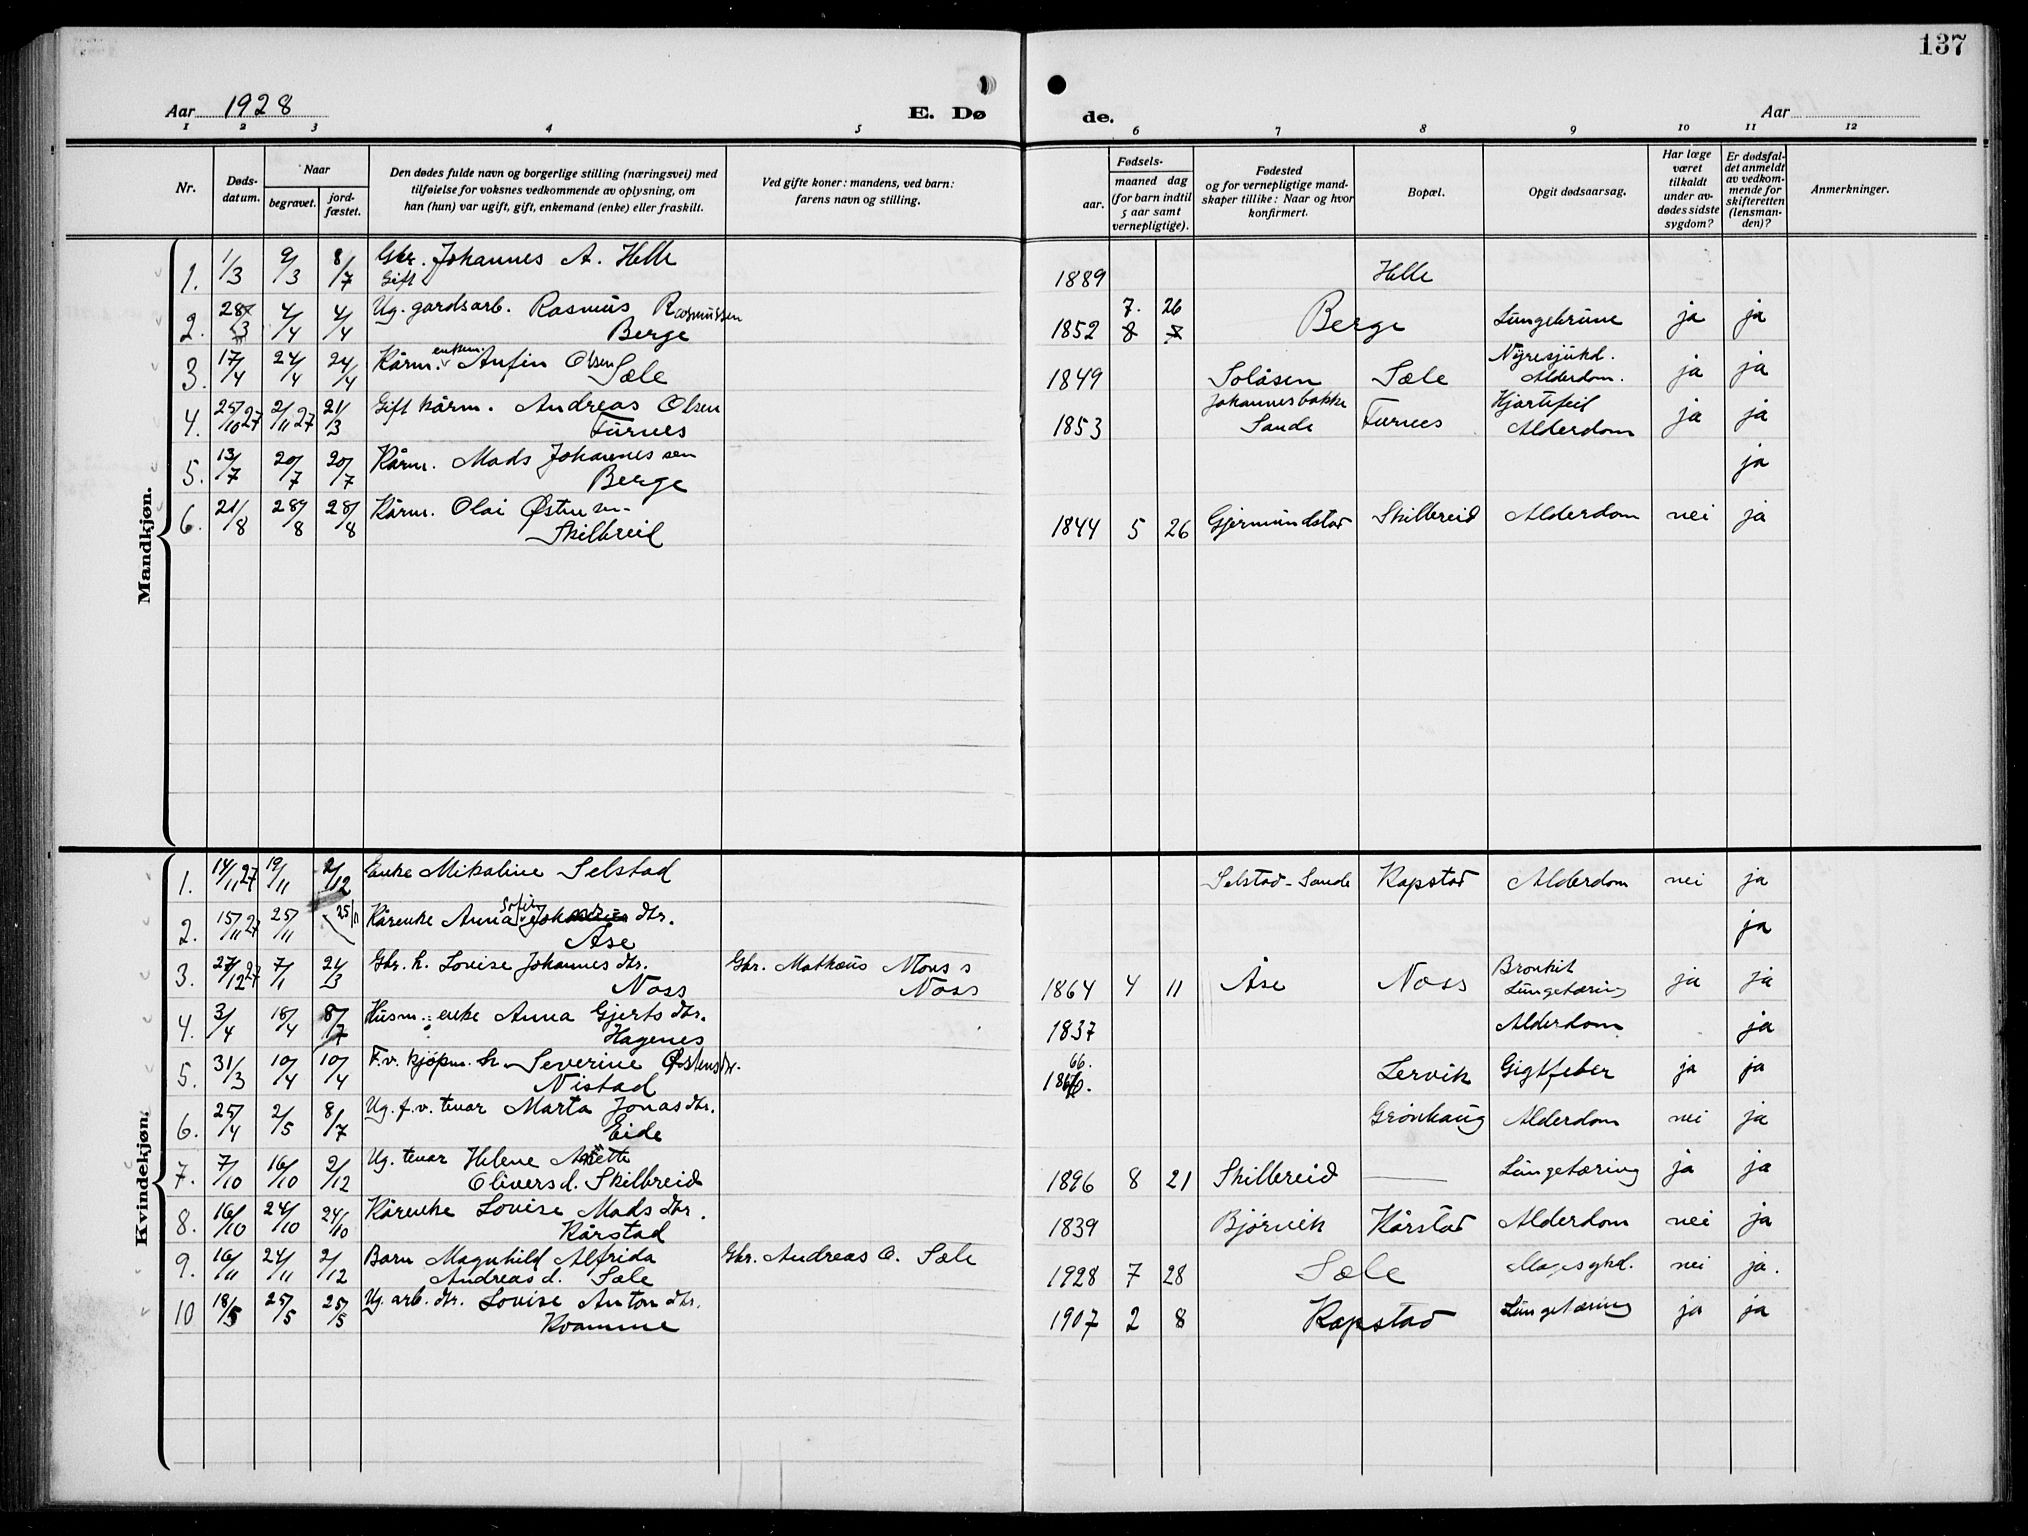 137
Aar 1928
E. Dø
de.
Aar
1 2 3 4 5 6 7 8 9 10 11 12
Nr.
Døds-
datum.
Naar
begravet.
jord-
fæstet.
Den dødes fulde navn og borgerlige stilling (næringsvei) med
tilføielse for voksnes vedkommende av oplysning, om
han (hun) var ugift, gift, enkemand (enke) eller fraskilt.
Ved gifte koner: mandens, ved barn:
farens navn og stilling.
Fødsels-
aar.
maaned dag
(for barn indtil
5 aar samt
vernepligtige).
Fødested
og for vernepligtige mand-
skaper tillike: Naar og hvor
konfirmert.
Bopæl.
Opgit dødsaarsag.
Har læge
været
tilkaldt
under av-
dødes sidste
sygdom?
Er dødsfal-
det anmeldt
av vedkom-
mende for
skifteretten
(lensman-
den)?
Anmerkninger.
Mandkjøn.
1. 1/3 9/3 8/7 Gbr. Johannes A. Helle
Gift
1889 Helle
2. 28/3 4/4 4/4 Ug. gardsarb. Rasmus Rasmussen
Berge
7. 26
1852 8 Berge Lungebrune ja ja
3. 17/4 24/4 24/4 Kårm. enkem. Anfin Olsen
Sæle
1849 Solåsen Sæle Nyresjukd.
Alderdom. ja ja
4. 25/10 27 2/11 27 21/3 Gift kårm. Andreas Olsen
Furnes
1853 Johannesbakke
Sande Furnes Hjartefeil
Alderdom ja ja
5. 13/7 20/7 20/7 Kårm. Mads Johannessen
Berge
ja
6. 21/8 28/8 28/8 Kårm. Olai Østensen
Skilbreid
1844 5 26 Gjermundstad Skilbreid Alderdom nei ja
Kvindekjøn.
1. 14/11 27 19/11 2/12 Enke Mikaline Selstad
Selstad - Sande Rapstad Alderdom nei ja
2. 15/11 27 25/11 25/11 Kårenke Anna Sofie dtr.
Åse
ja
3. 27/12 27 7/1 21/3 Gbr. h. Lovise Johannes dtr.
Noss
Gbr. Mathæus Mons s
Noss
1864 4 11 Åse Noss Bronkit
Lungetæring ja ja
4. 3/4 18/4 8/7 Husm. enke Anna Gjerts dtr.
Hagenes
1837 Alderdom ja
5. 31/3 10/4 10/4 F.v. kjøpm. h. Severine Østensdtr.
Nistad
66.
Lervik Gigtfeber ja ja
6. 25/4 2/5 8/7 Ug. f.v. tenar Marta Jonasdtr.
Eide
Grønhaug Alderdom nei ja
7. 7/10 16/10 2/12 Ug. tenar Helene
Oliversd. Skilbreid
1896 8 21 Skilbreid — Lungetæring ja ja
8. 16/10 24/10 24/10 Kårenke Lovise Mads dtr.
Kårstad
1839 Bjørvik Kårstad Alderdom nei ja
9. 16/11 24/11 2/12 Barn Magnhild Alfrida
Andreas d. Sæle
Gbr. Andreas O. Sæle
1928 7 28 Sæle Magesykd. nei ja.
10 18/5 25/5 25/5 Ug. arb. dtr. Lovise Anton dtr.
Kvamme
1907 2 8 Rapstad Lungetæring ja ja